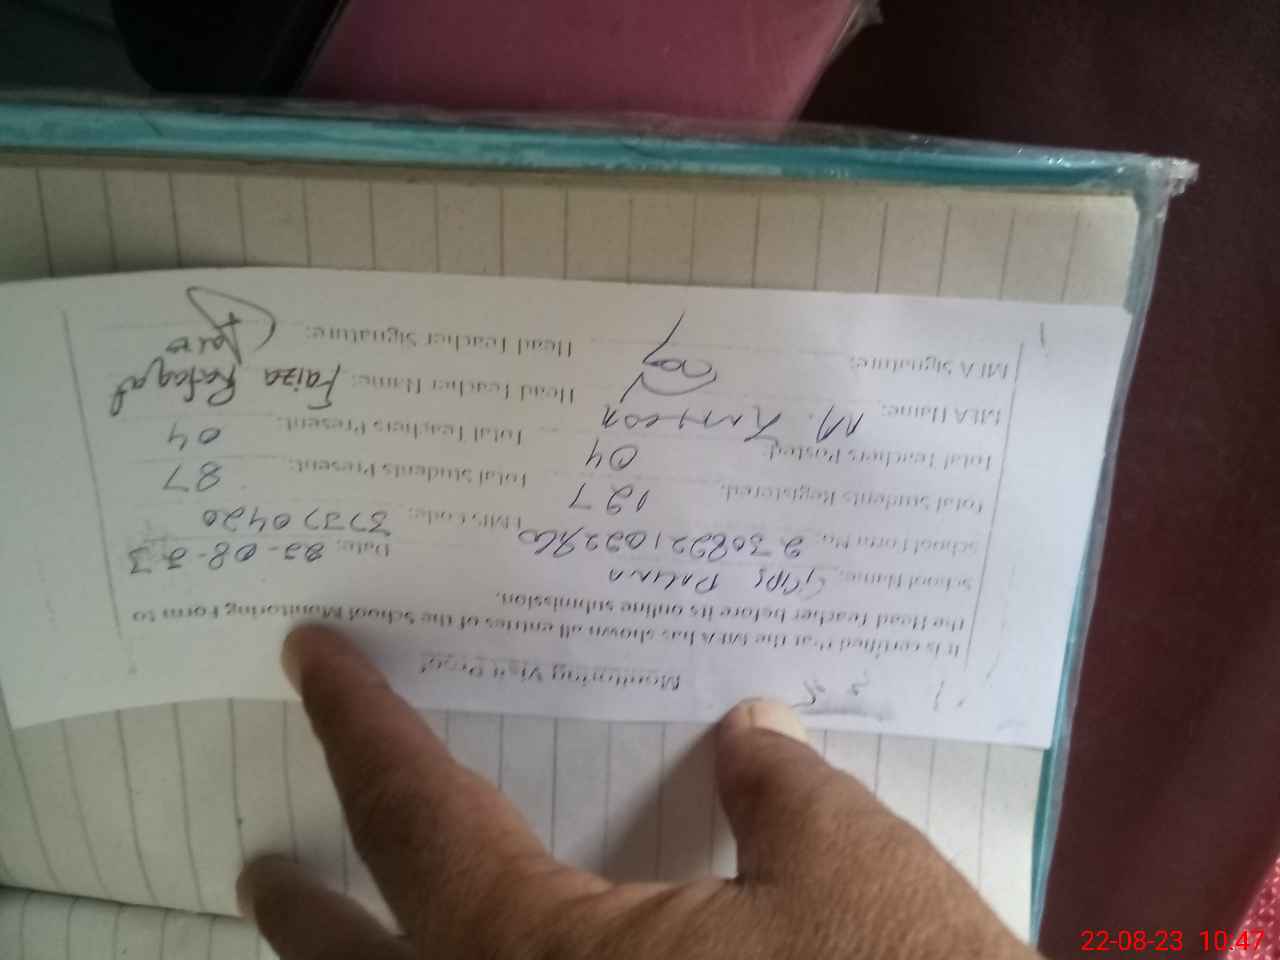 Monitoring Visit Proof
It is certified that the MEA has shown all entries of the School Monitoring Form to
the Head Teacher before its online submission.
School Name: GGPS
School Form No: Date: 22-08-23
EMIS Code: 37370420
Total Students Registered: 127 Total Students Present: 87
Total Teachers Posted: 04 Total Teachers Present: 04
MEA Name: M. Head Teacher Name: Faiza Rafaqat
MEA Signature: Head Teacher Signature:
22-08-23 10:47